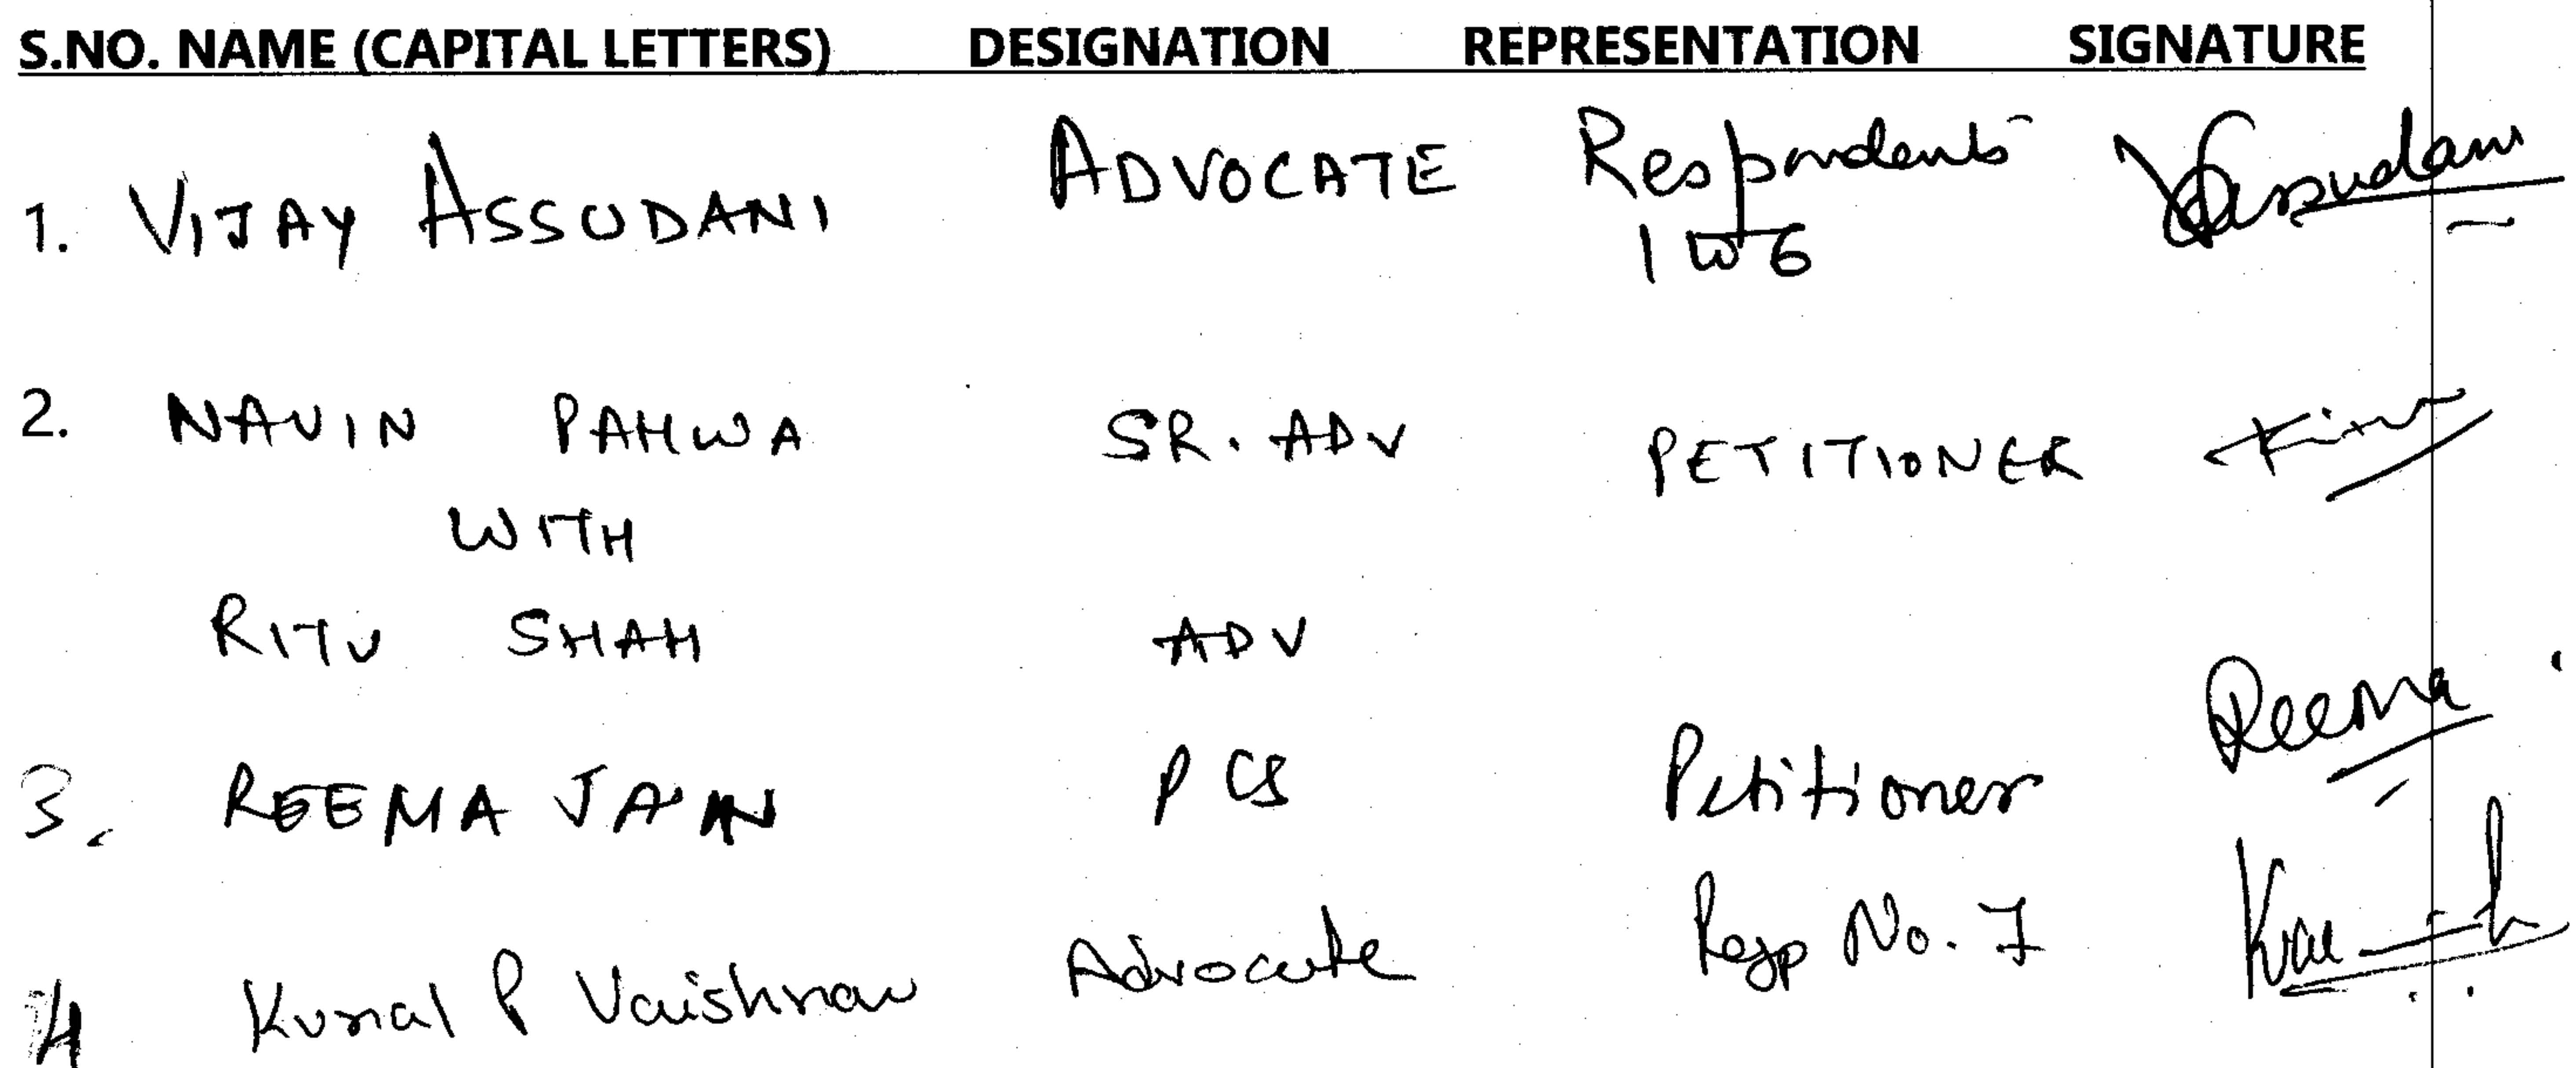 S.NO. NAME (CAPITAL LETTERS) DESIGNATION REPRESENTATION SIGNATURE
1. VIJAY ASSUDANI ADVOCATE Respondents VAssudani
1 to 6
2. NAVIN PAHWA SR. ADV PETITIONER
WITH
RITU SHAH ADV
3. REEMA JAIN PCS Petitioner Reema
4 Kunal P Vaishnav Advocate Resp No. 7